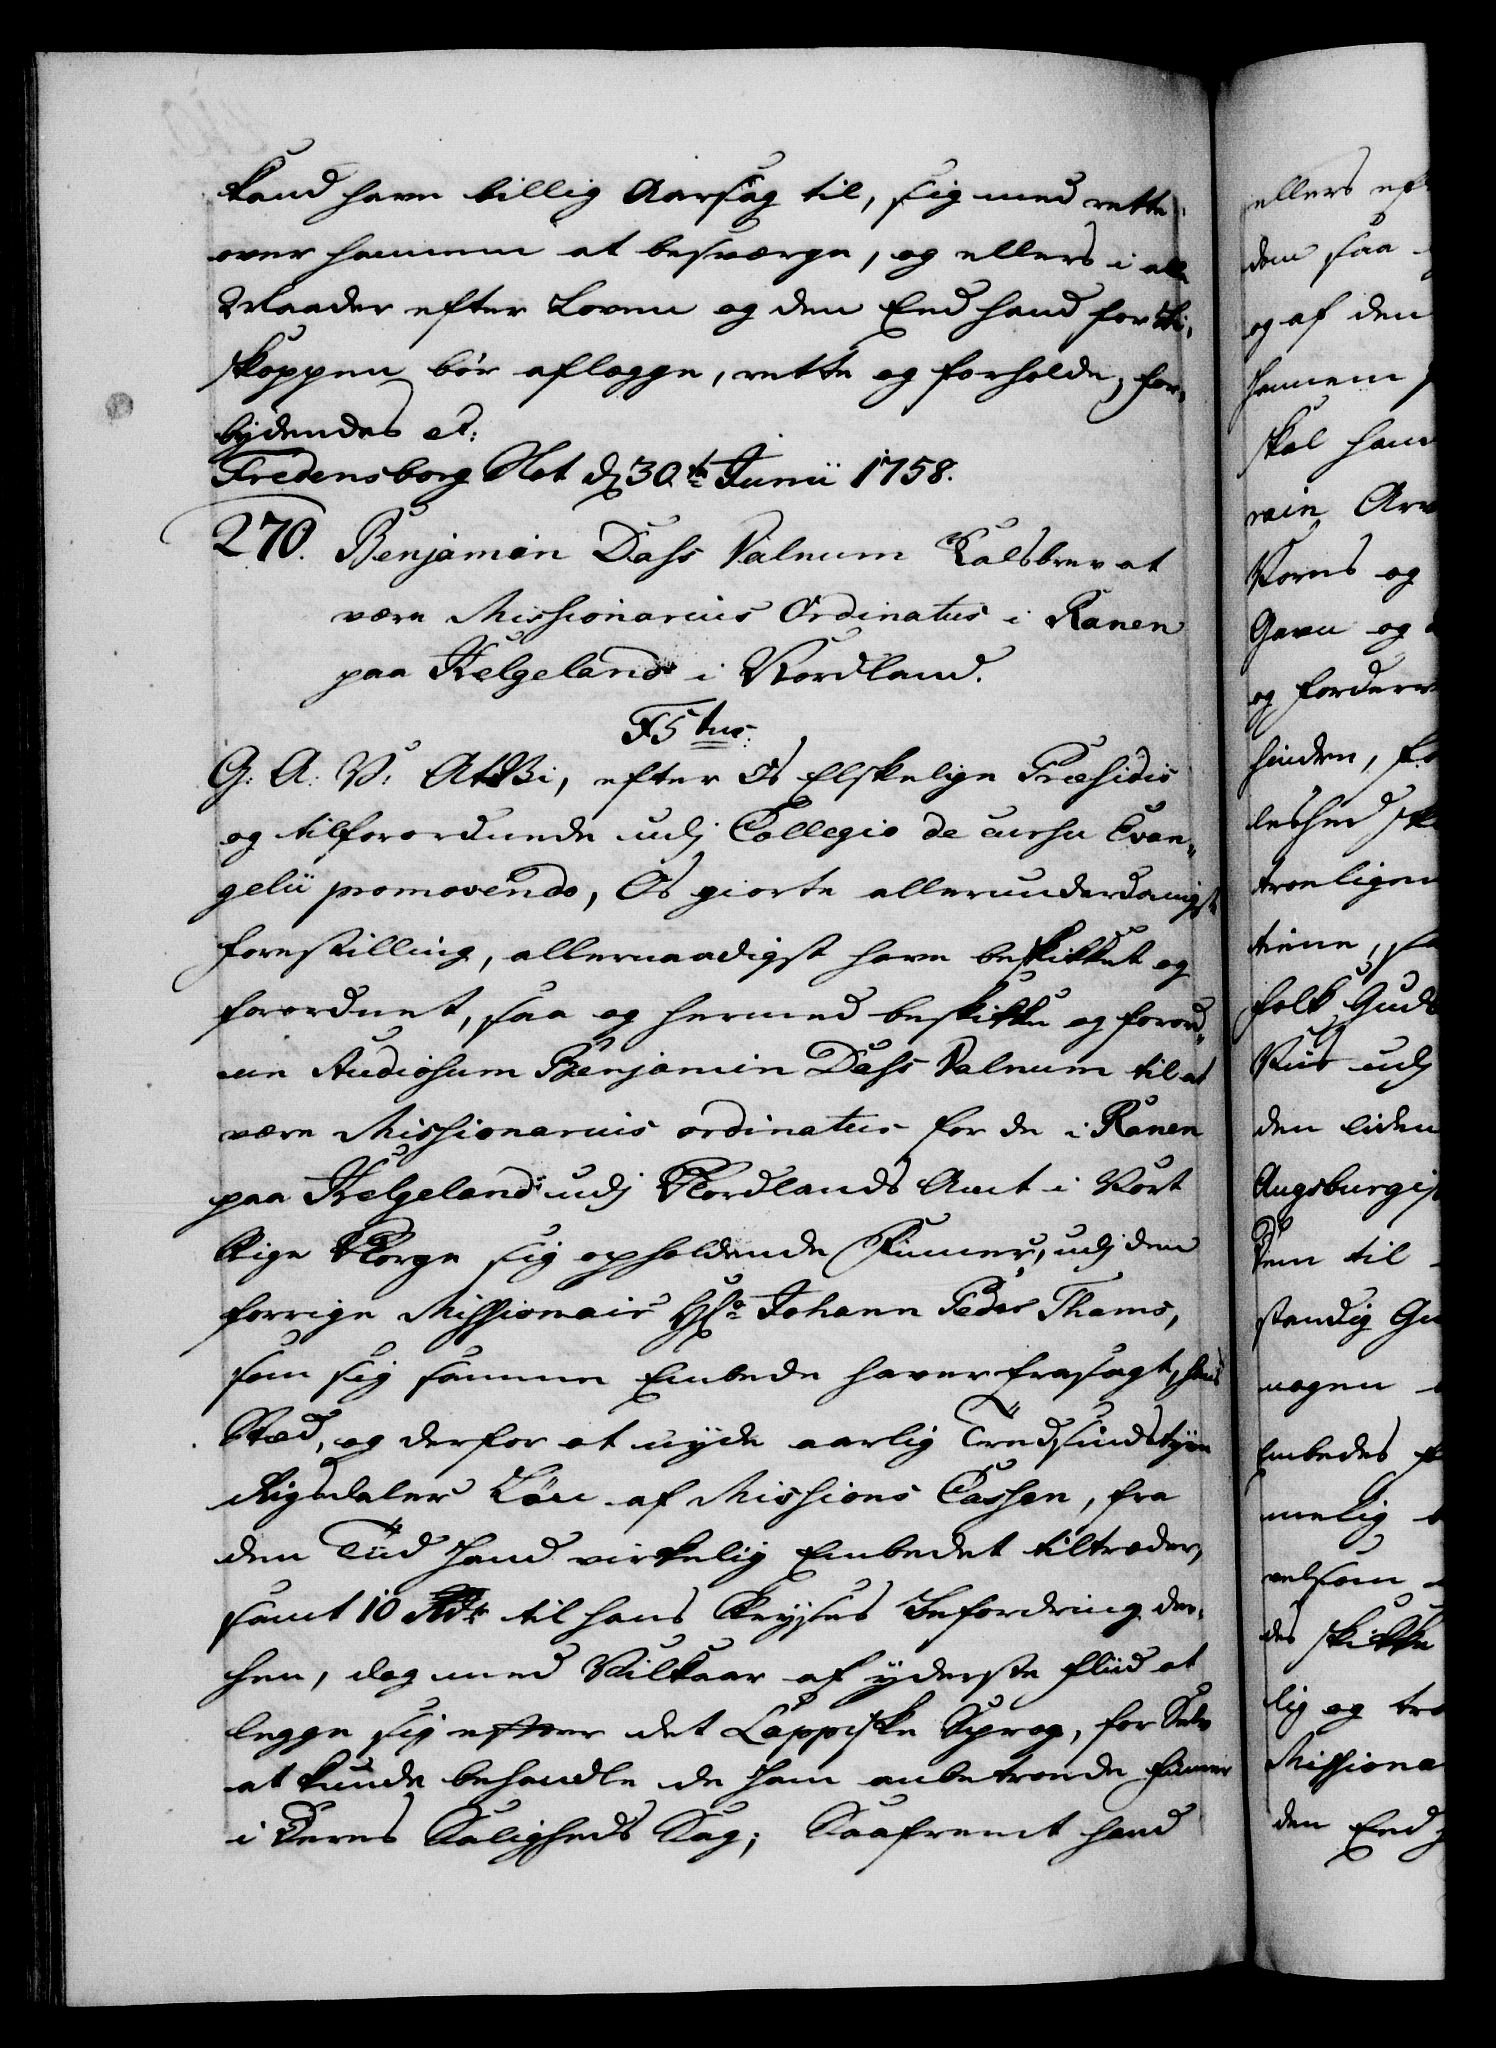 kand have billig Aarsag til, sig med rette
over hannem at besværge, og ellers i alle
Maader efter Loven og den Eed hand for Bi-
skoppen bör aflægge, rette og forholde, for-
bydendes etc:
Fredensborg Slot d 30te Junii 1758.
270. Benjamin Dass Valnum Kalsbrev at
være Missionarius Ordinatus i Ranen
paa Helgeland i Nordland.
F5tus.
G: A: V: At Vi, efter Os Elskelige Præsidis
og tilforordnede udj Collegio de cursu Evan-
gelii promovendo, Os giorte allerunderdanigst
forestilling, allernaadigst have beskikket og
forordnet, saa og hermed beskikke og forord-
ne Studiosum Benjamin Dass Valnum til at
være Missionarius ordinatus for de i Ranen
paa Helgeland udj Nordlands Amt i Vort
Rige Norge sig opholdende Finner, udj den
forrige Missionair Hr Johann Peder Thams,
som sig samme Embede haver frasagt, hans
Sted, og derfor at nyde aarlig Tredsindstyve
Rigsdaler Løn af Missions Cassen, fra
den Tiid hand virkelig Embedet tiltræder,
samt 10 Rdr til hans Reyses Befordring der-
hen, dog med Vilkaar af yderste fliid at
legge sig efter det Lappiske Sprog, for Selv
at kunde behandle de ham anbetroede Finner
i deres Saligheds Sag; Saafremt hand
ellers eft
dem saa
og af den
hannem
skal han
rain Arv
Vores og
Gavn og
og fordærv
hindre, f
leshed sk
troeligen
tiene, sa
folk Guds
Viis udj
den liden
Augsburgis
dem til
stændig Gu
nogen
Embedes
melig
velsom
des skikke
lig og tro
Missiona
den Eed